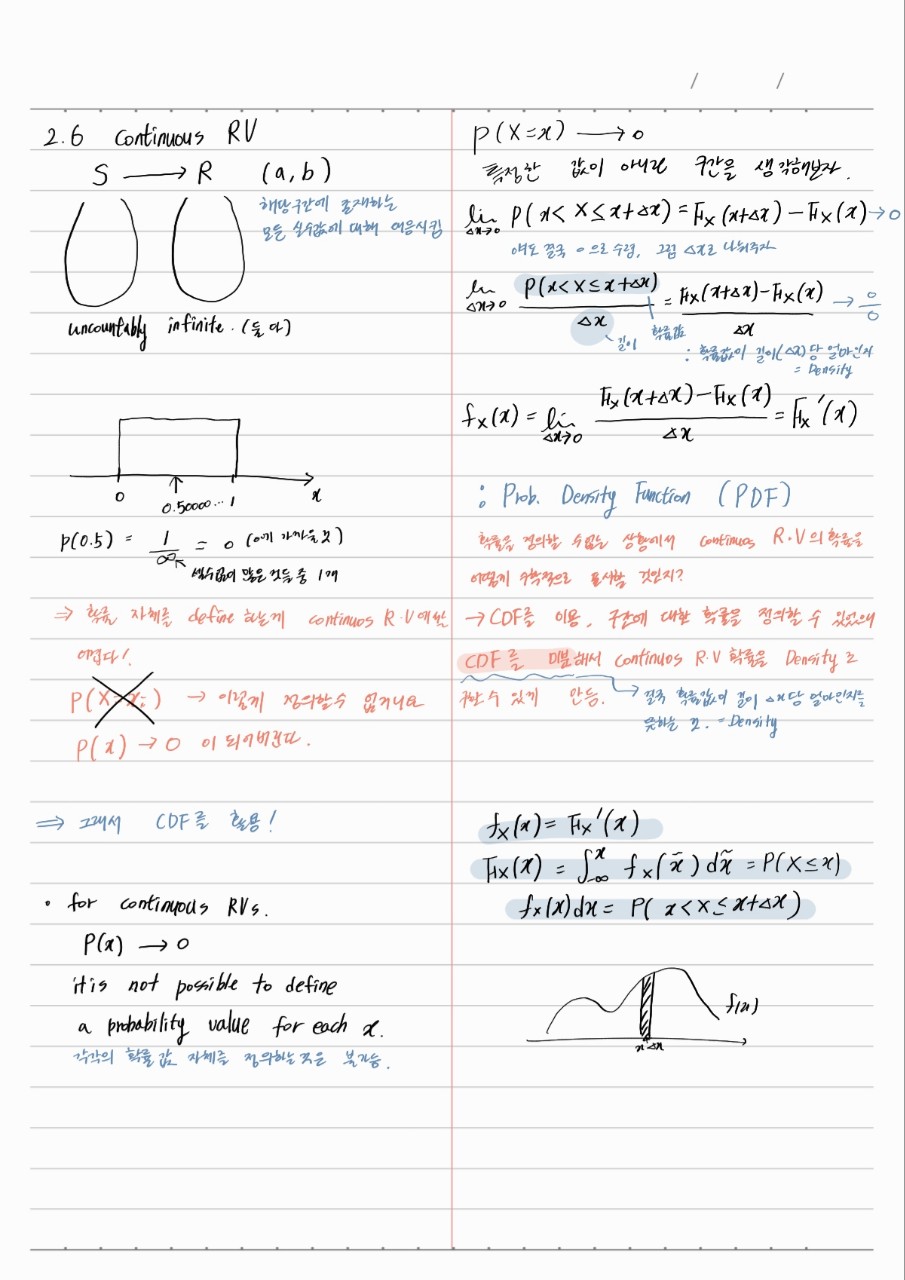 2.6 Continuous RV
S → R (a, b)
해당구간에 존재하는
모든 실수값에 대해 대응시킴
uncountably infinite. (둘 다)
0 0.50000... 1 x
P(0.5) = 1/∞ = 0 (0에 가까울 것)
셀수없이 많은 것들 중 1개
⇒ 확률 자체를 define 하는게 continuos R.V에선
어렵다!.
P(X=xᵢ) → 이렇게 정의할수 없거니와
P(x) → 0 이 되어버린다.
⇒ 그래서 CDF를 활용!
• for continuous RVs.
P(x) → 0
it is not possible to define
a probability value for each x.
각각의 확률값 자체를 정의하는것은 불가능.
P(X=x) → 0
특정한 값이 아니라 구간을 생각해보자.
lim Δx→0 P(x<X≤x+Δx) = Fx(x+Δx) − Fx(x) → 0
얘도 결국 0으로 수렴, 그럼 Δx로 나눠주자
lim Δx→0 P(x<X≤x+Δx)/Δx = Fx(x+Δx)−Fx(x)/Δx → 0/0
길이 확률값
: 확률값이 길이(Δx)당 얼마인지
= Density
fx(x) = lim Δx→0 Fx(x+Δx)−Fx(x)/Δx = Fx′(x)
: Prob. Density Function (PDF)
확률을 정의할 수없는 상황에서 continuos R.V의 확률을
어떻게 수학적으로 표시할 것인지?
→ CDF를 이용, 구간에 대한 확률을 정의할 수 있었으며
CDF를 미분해서 continuos R.V 확률을 Density로
구할 수 있게 만듬.
결국 확률값이 길이 Δx당 얼마인지를
뜻하는 것. = Density
fx(x) = Fx′(x)
Fx(x) = ∫₋∞ˣ fx(x̃) dx̃ = P(X≤x)
fx(x)dx = P(x<X≤x+Δx)
f(x)
x Δx